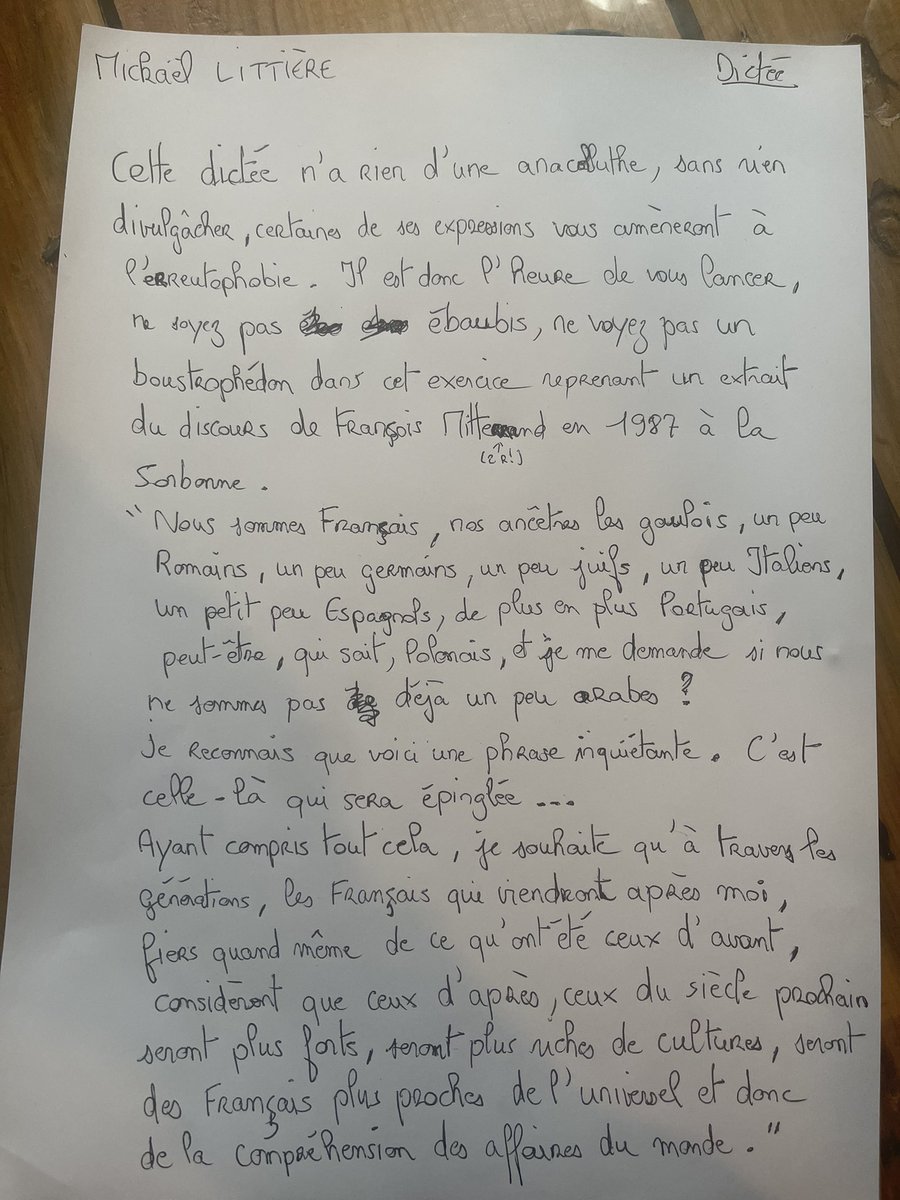 Mickaël LITTIÈRE
Dictée
Cette dictée n'a rien d'une anacoluthe, sans rien
divulgâcher, certaines de ses expressions vous amèneront à
l'erreutophobie. Il est donc l'heure de vous lancer,
ne soyez pas ébaubis, ne voyez pas un
boustrophédon dans cet exercice reprenant un extrait
du discours de François Mitterrand en 1987 à la
(2 R!)
Sorbonne.
"Nous sommes Français, nos ancêtres les gaulois, un peu
Romains, un peu germains, un peu juifs, un peu Italiens,
un petit peu Espagnols, de plus en plus Portugais,
peut-être, qui sait, Polonais, et je me demande si nous
ne sommes pas déjà un peu arabes ?
Je reconnais que voici une phrase inquiétante. C'est
celle-là qui sera épinglée ...
Ayant compris tout cela, je souhaite qu'à travers les
générations, les Français qui viendront après moi,
fiers quand même de ce qu'ont été ceux d'avant,
considèront que ceux d'après, ceux du siècle prochain
seront plus forts, seront plus riches de cultures, seront
des Français plus proches de l'universel et donc
de la compréhension des affaires du monde."